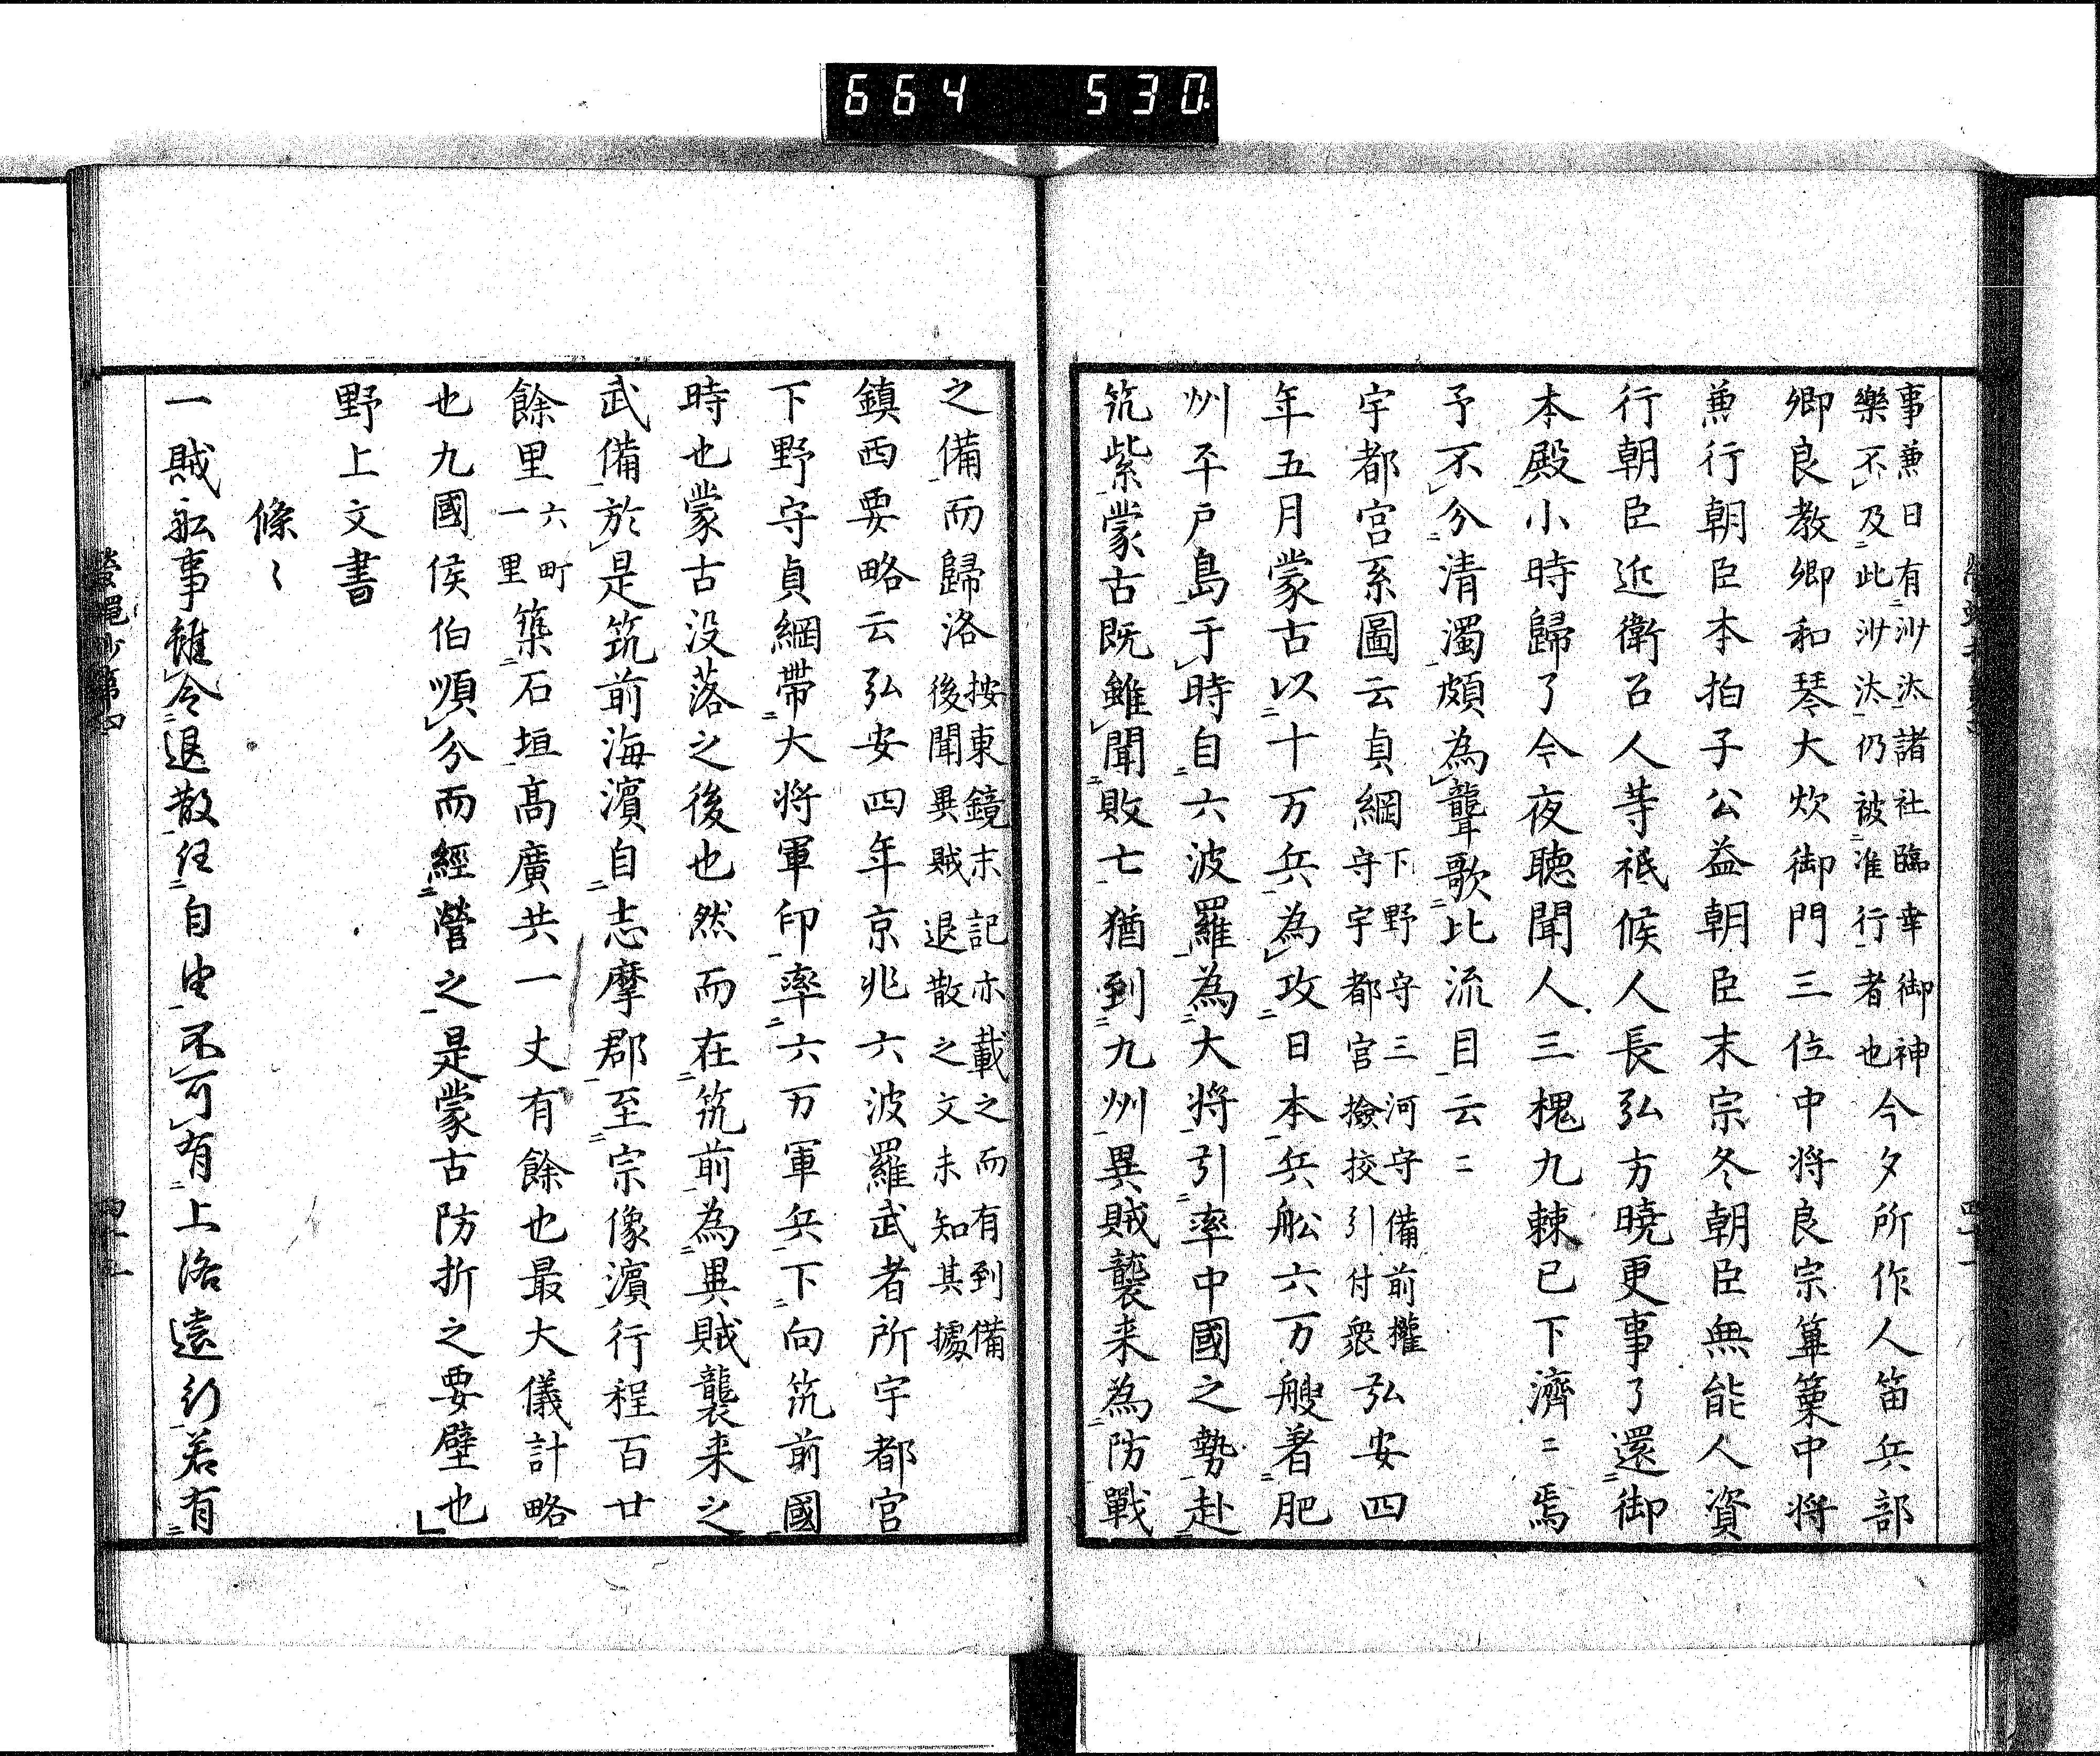 664 530.
事兼日有沙汰諸社臨幸御神
樂不及此沙汰仍被准行者也今夕所作人笛兵部
卿良教卿和琴大炊御門三位中将良宗篳篥中将
兼行朝臣本拍子公益朝臣末宗冬朝臣無能人資
行朝臣近衛召人等祗候人長弘方曉更事了還御
本殿小時歸了今夜聽聞人三槐九棘已下濟ニ焉
予不分清濁頗為聾歌比流目云ニ
宇都宮系圖云貞綱下野守三河守備前權
守宇都宮撿挍引付衆弘安四
年五月蒙古以十万兵為攻日本兵舩六万艘著肥
州平戸島于時自六波羅為大将引率中國之勢赴
筑紫蒙古既雖聞敗亡猶到九州異賊襲来為防戰
之備而歸洛按東鏡末記亦載之而有到備
後聞異賊退散之文未知其據
鎮西要略云弘安四年京兆六波羅武者所宇都宮
下野守貞綱帶大将軍印率六万軍兵下向筑前國
時也蒙古没落之後也然而在筑前為異賊襲来之
武備於是筑前海濵自志摩郡至宗像濵行程百廿
餘里六町
一里築石垣高廣共一丈有餘也最大儀計略
也九國侯伯順分而經營之是蒙古防折之要壁也
野上文書
條〻
一賊舩事雖令退散任自由不可有上洛遠行若有
螢蠅抄第四
四十二